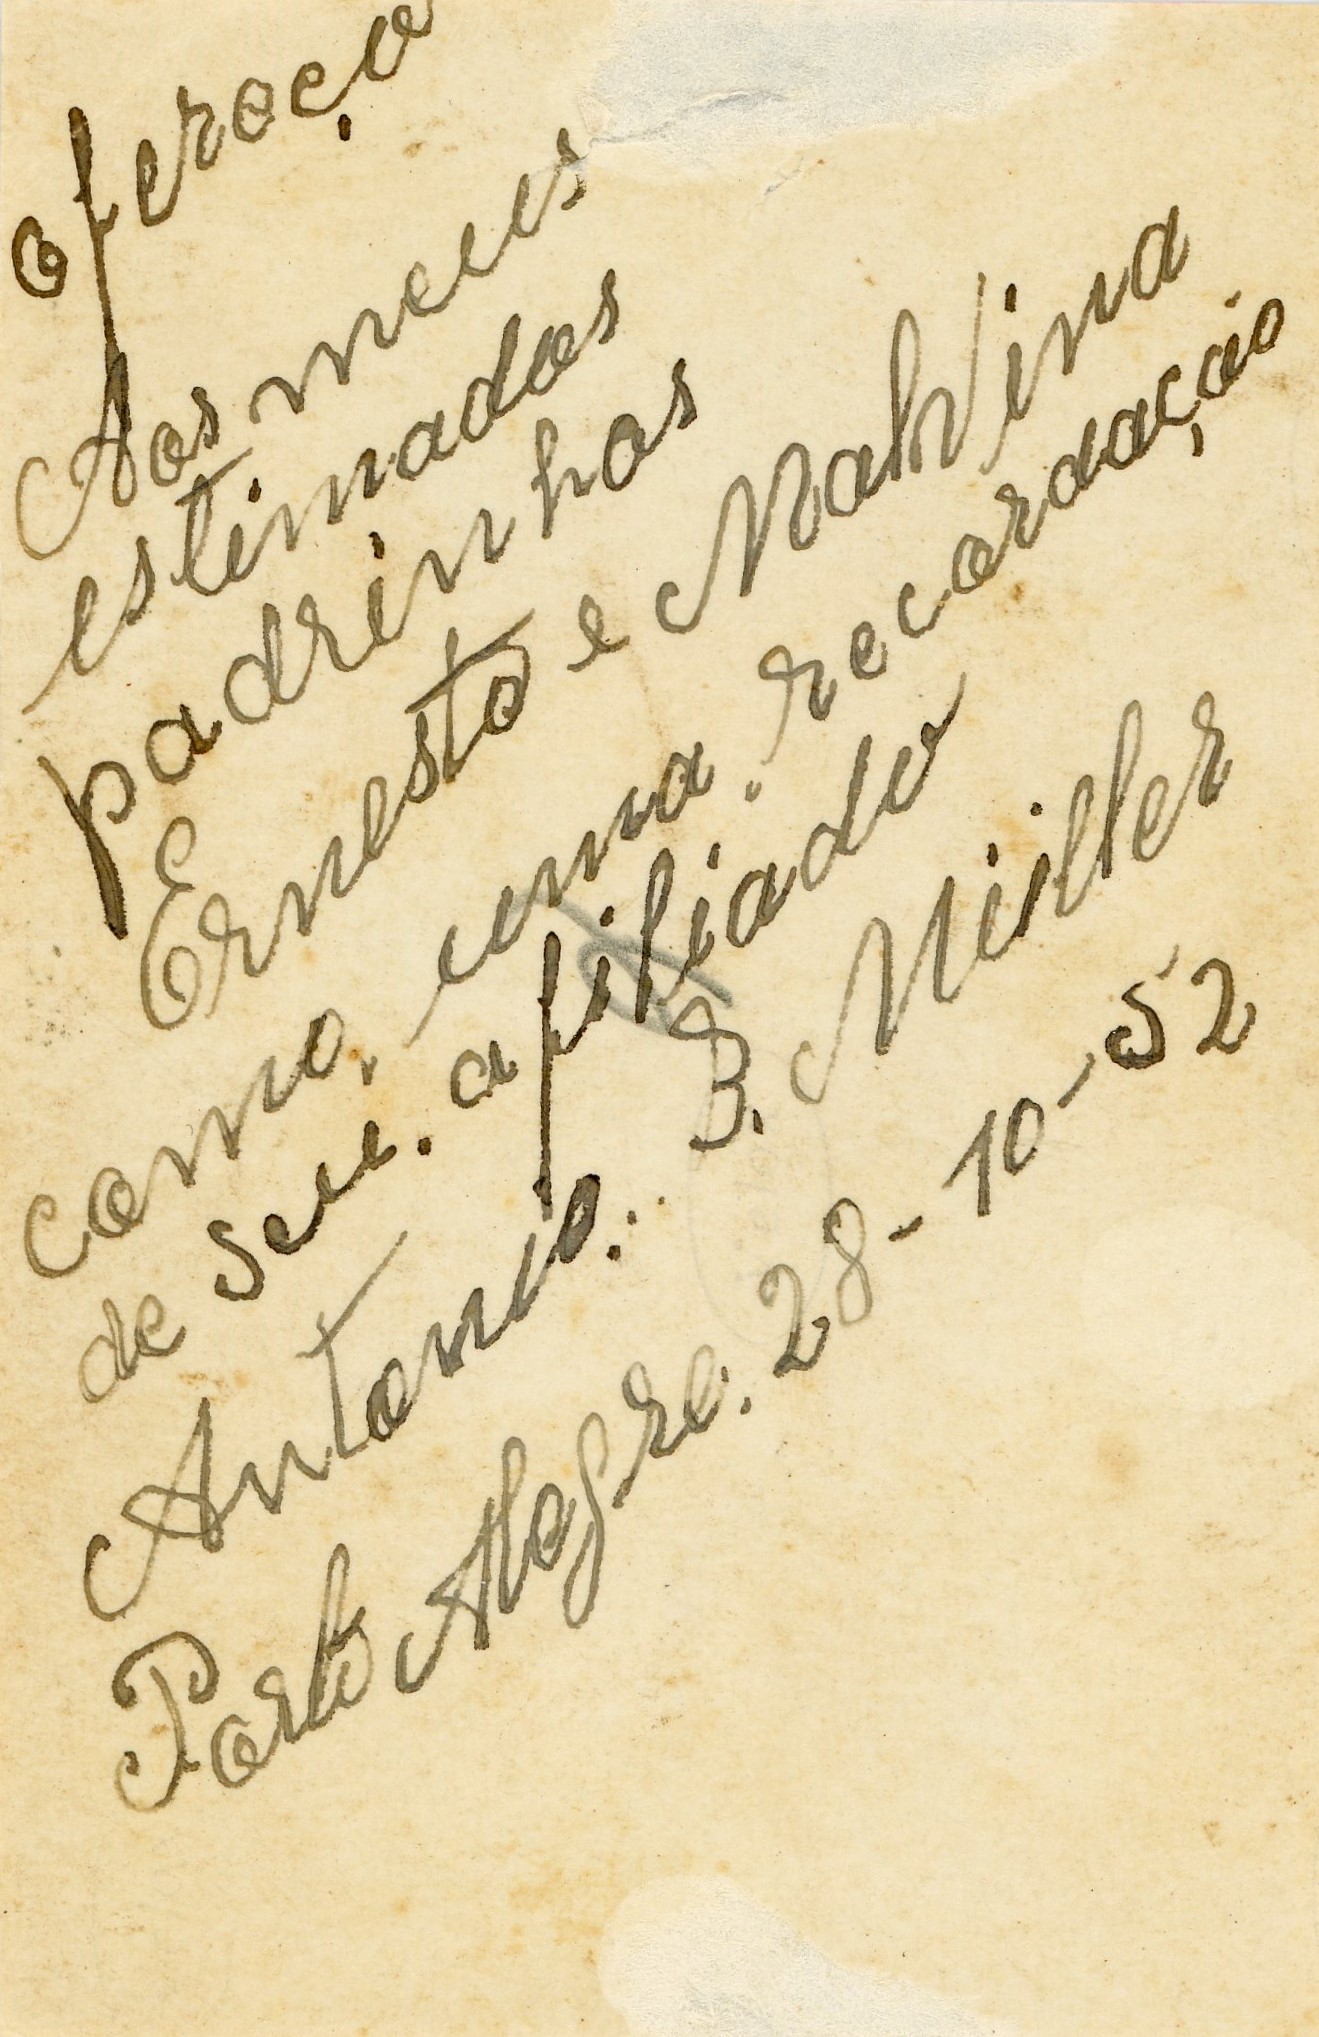 Ofereço
Aos meus
estimados
padrinhos
Ernesto e Malvina
como, uma. recordação
de seu. afiliado
Antonio. B. Müller
Porto Alegre. 28-10-52